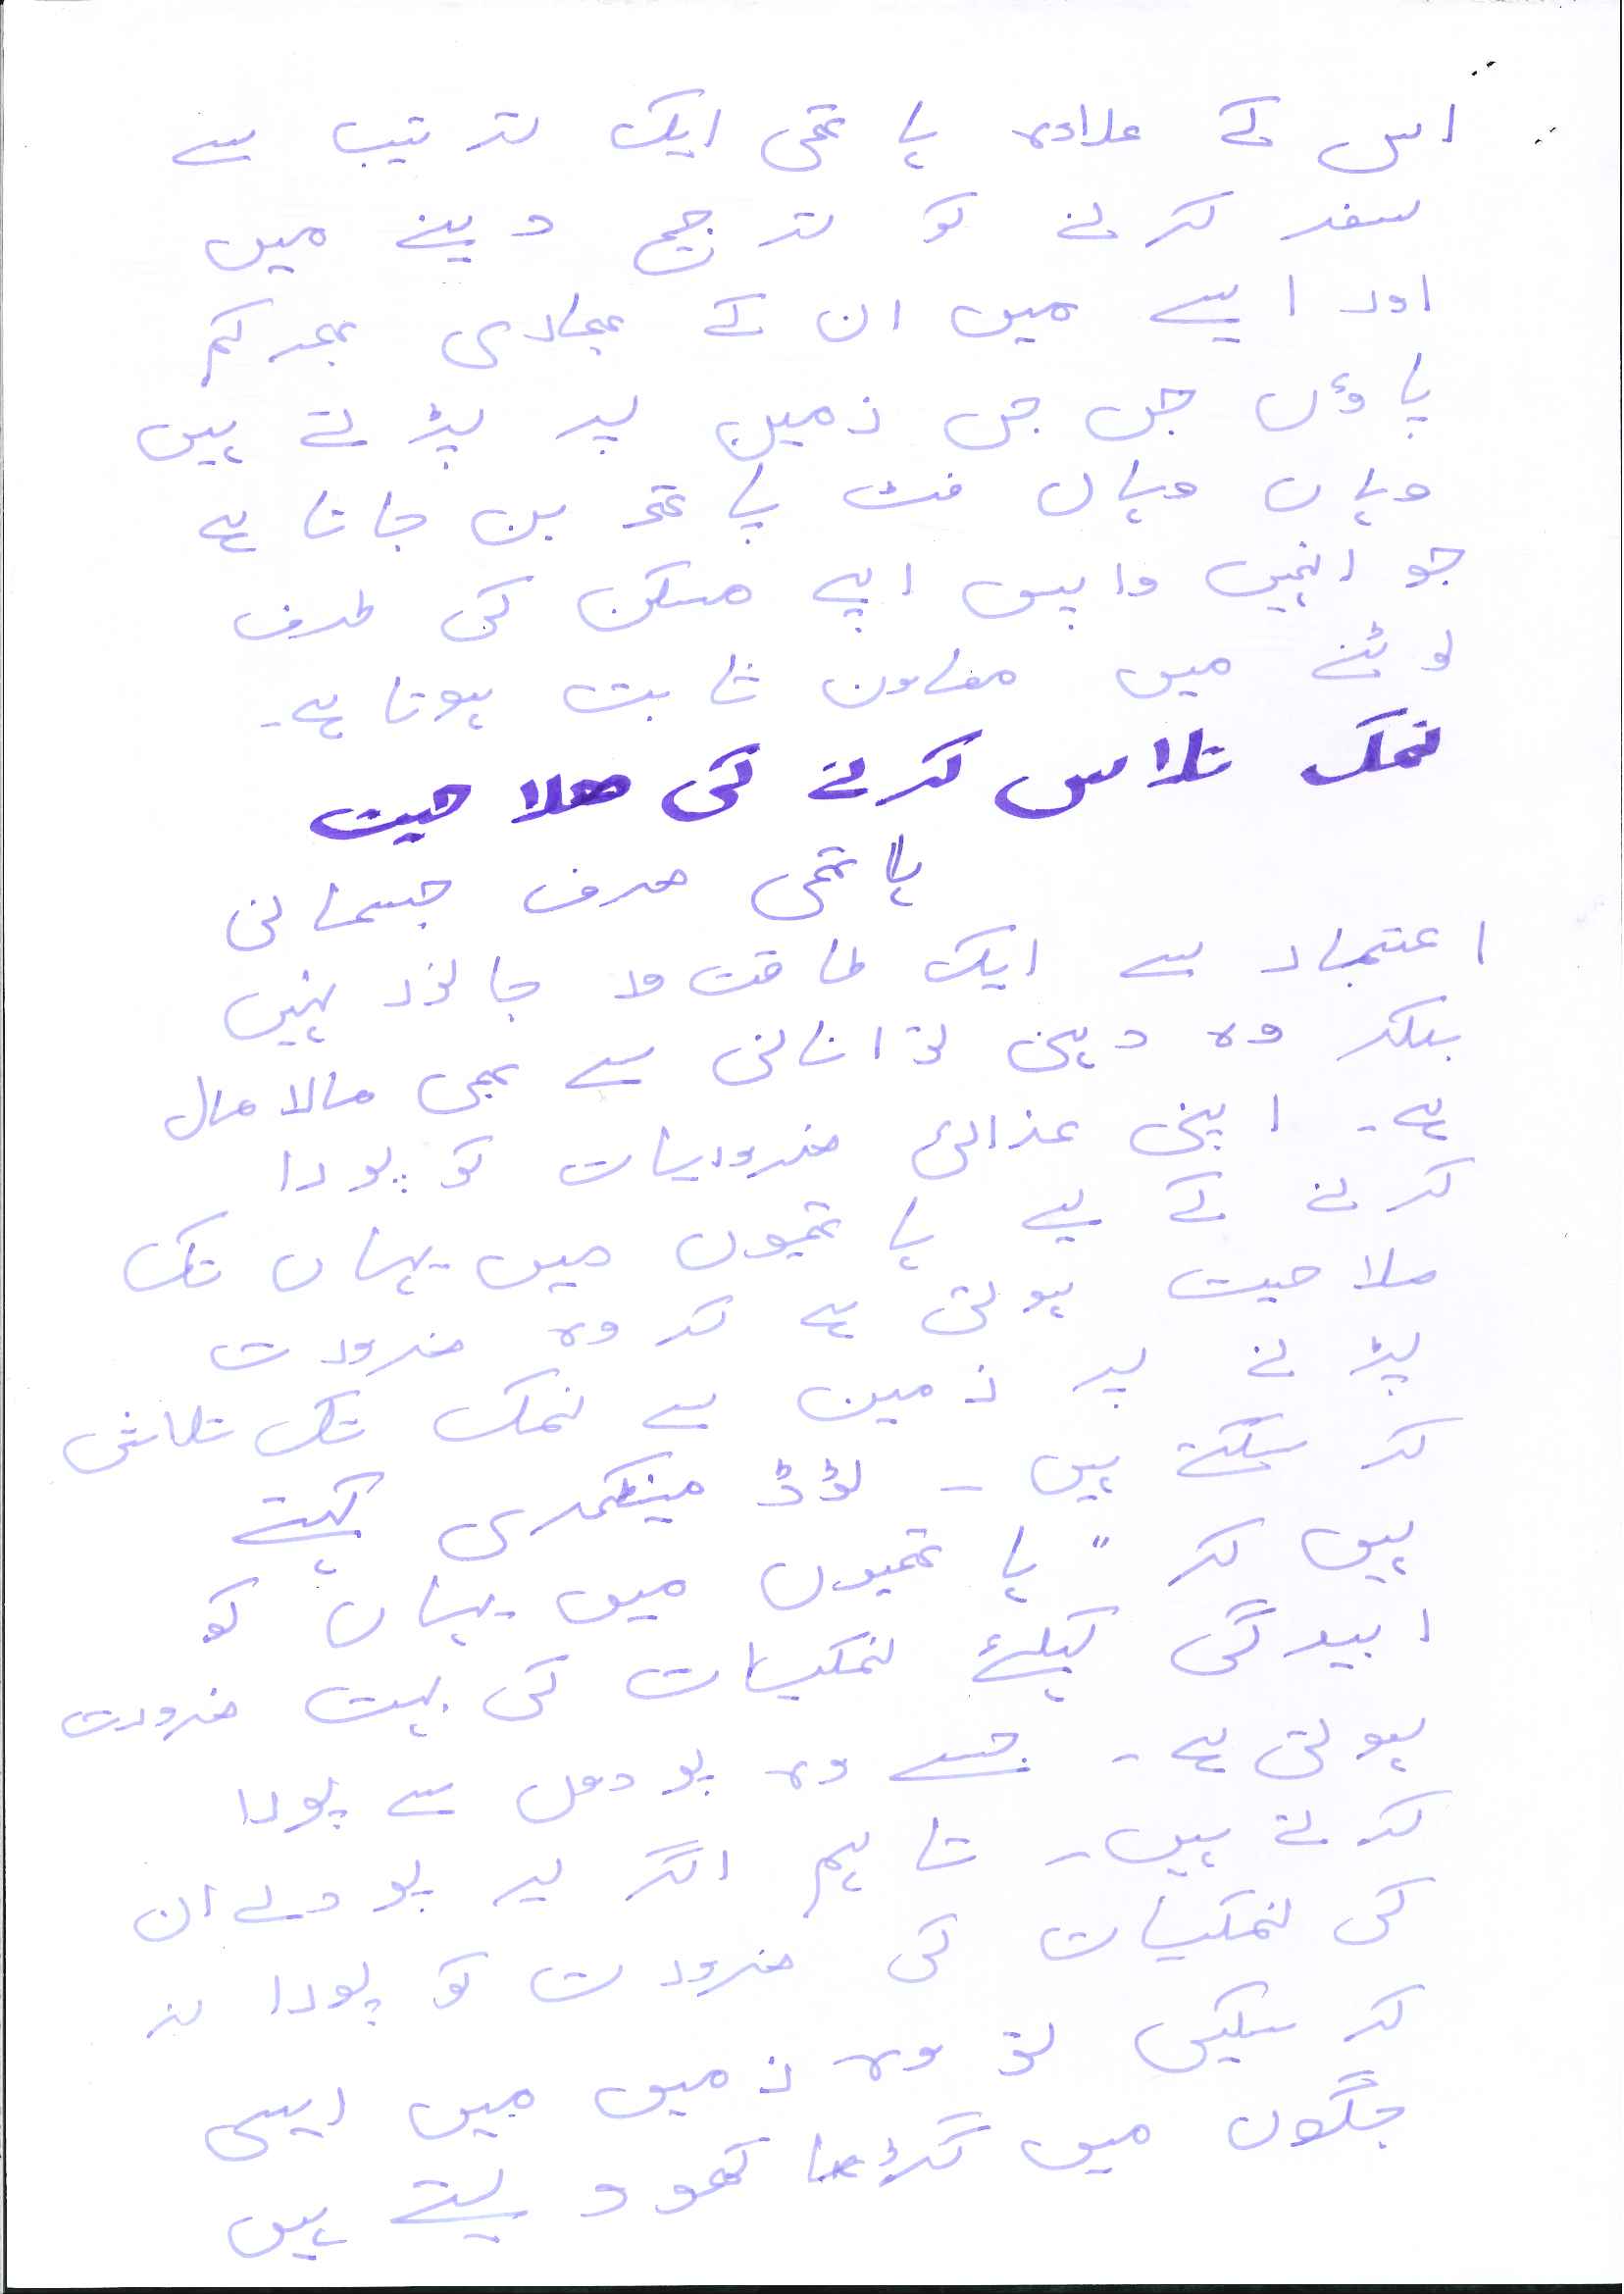 اس کے علاوہ ہاتھی ایک ترتیب سے
سفر کرنے کو ترجیح دینے میں
اور ایسے میں ان کے بھاری بھرکم
پاؤں جس جس زمین پر پڑتے ہیں
وہاں وہاں فٹ پاتھ بن جاتا ہے
جو انہیں واپس اپنے مسکن کی طرف
لوٹنے میں معاون ثابت ہوتا ہے۔
نمک تلاس کرنے کی صلاحیت
ہاتھی صرف جسمانی
اعتبار سے ایک طاقت ور جانور نہیں
بلکہ وہ دہنی توانائی سے بھی مالا مال
ہے۔ اپنی عذائی ضروریات کو پورا
کرنے کے لیے ہاتھیوں میں یہاں تک
صلاحیت ہوتی ہے کہ وہ ضرورت
پڑنے پر زمین سے نمک تک تلاش
کر سکتے ہیں۔ لؤڈ مینٹگمری کہتے
ہیں کہ " ہاتھیوں میں یہاں کو
ابیدگی کیلئے نمکیات کی بہت ضرورت
ہوتی ہے۔ جسے وہ پودوں سے پورا
کرتے ہیں۔ تاہم اگر یہ پودے ان
کی نمکیات کی ضرورت کو پورا نہ
کر سکیں تو وہ زمین میں ایسی
جگوں میں گڑھا کھود لیتے ہیں